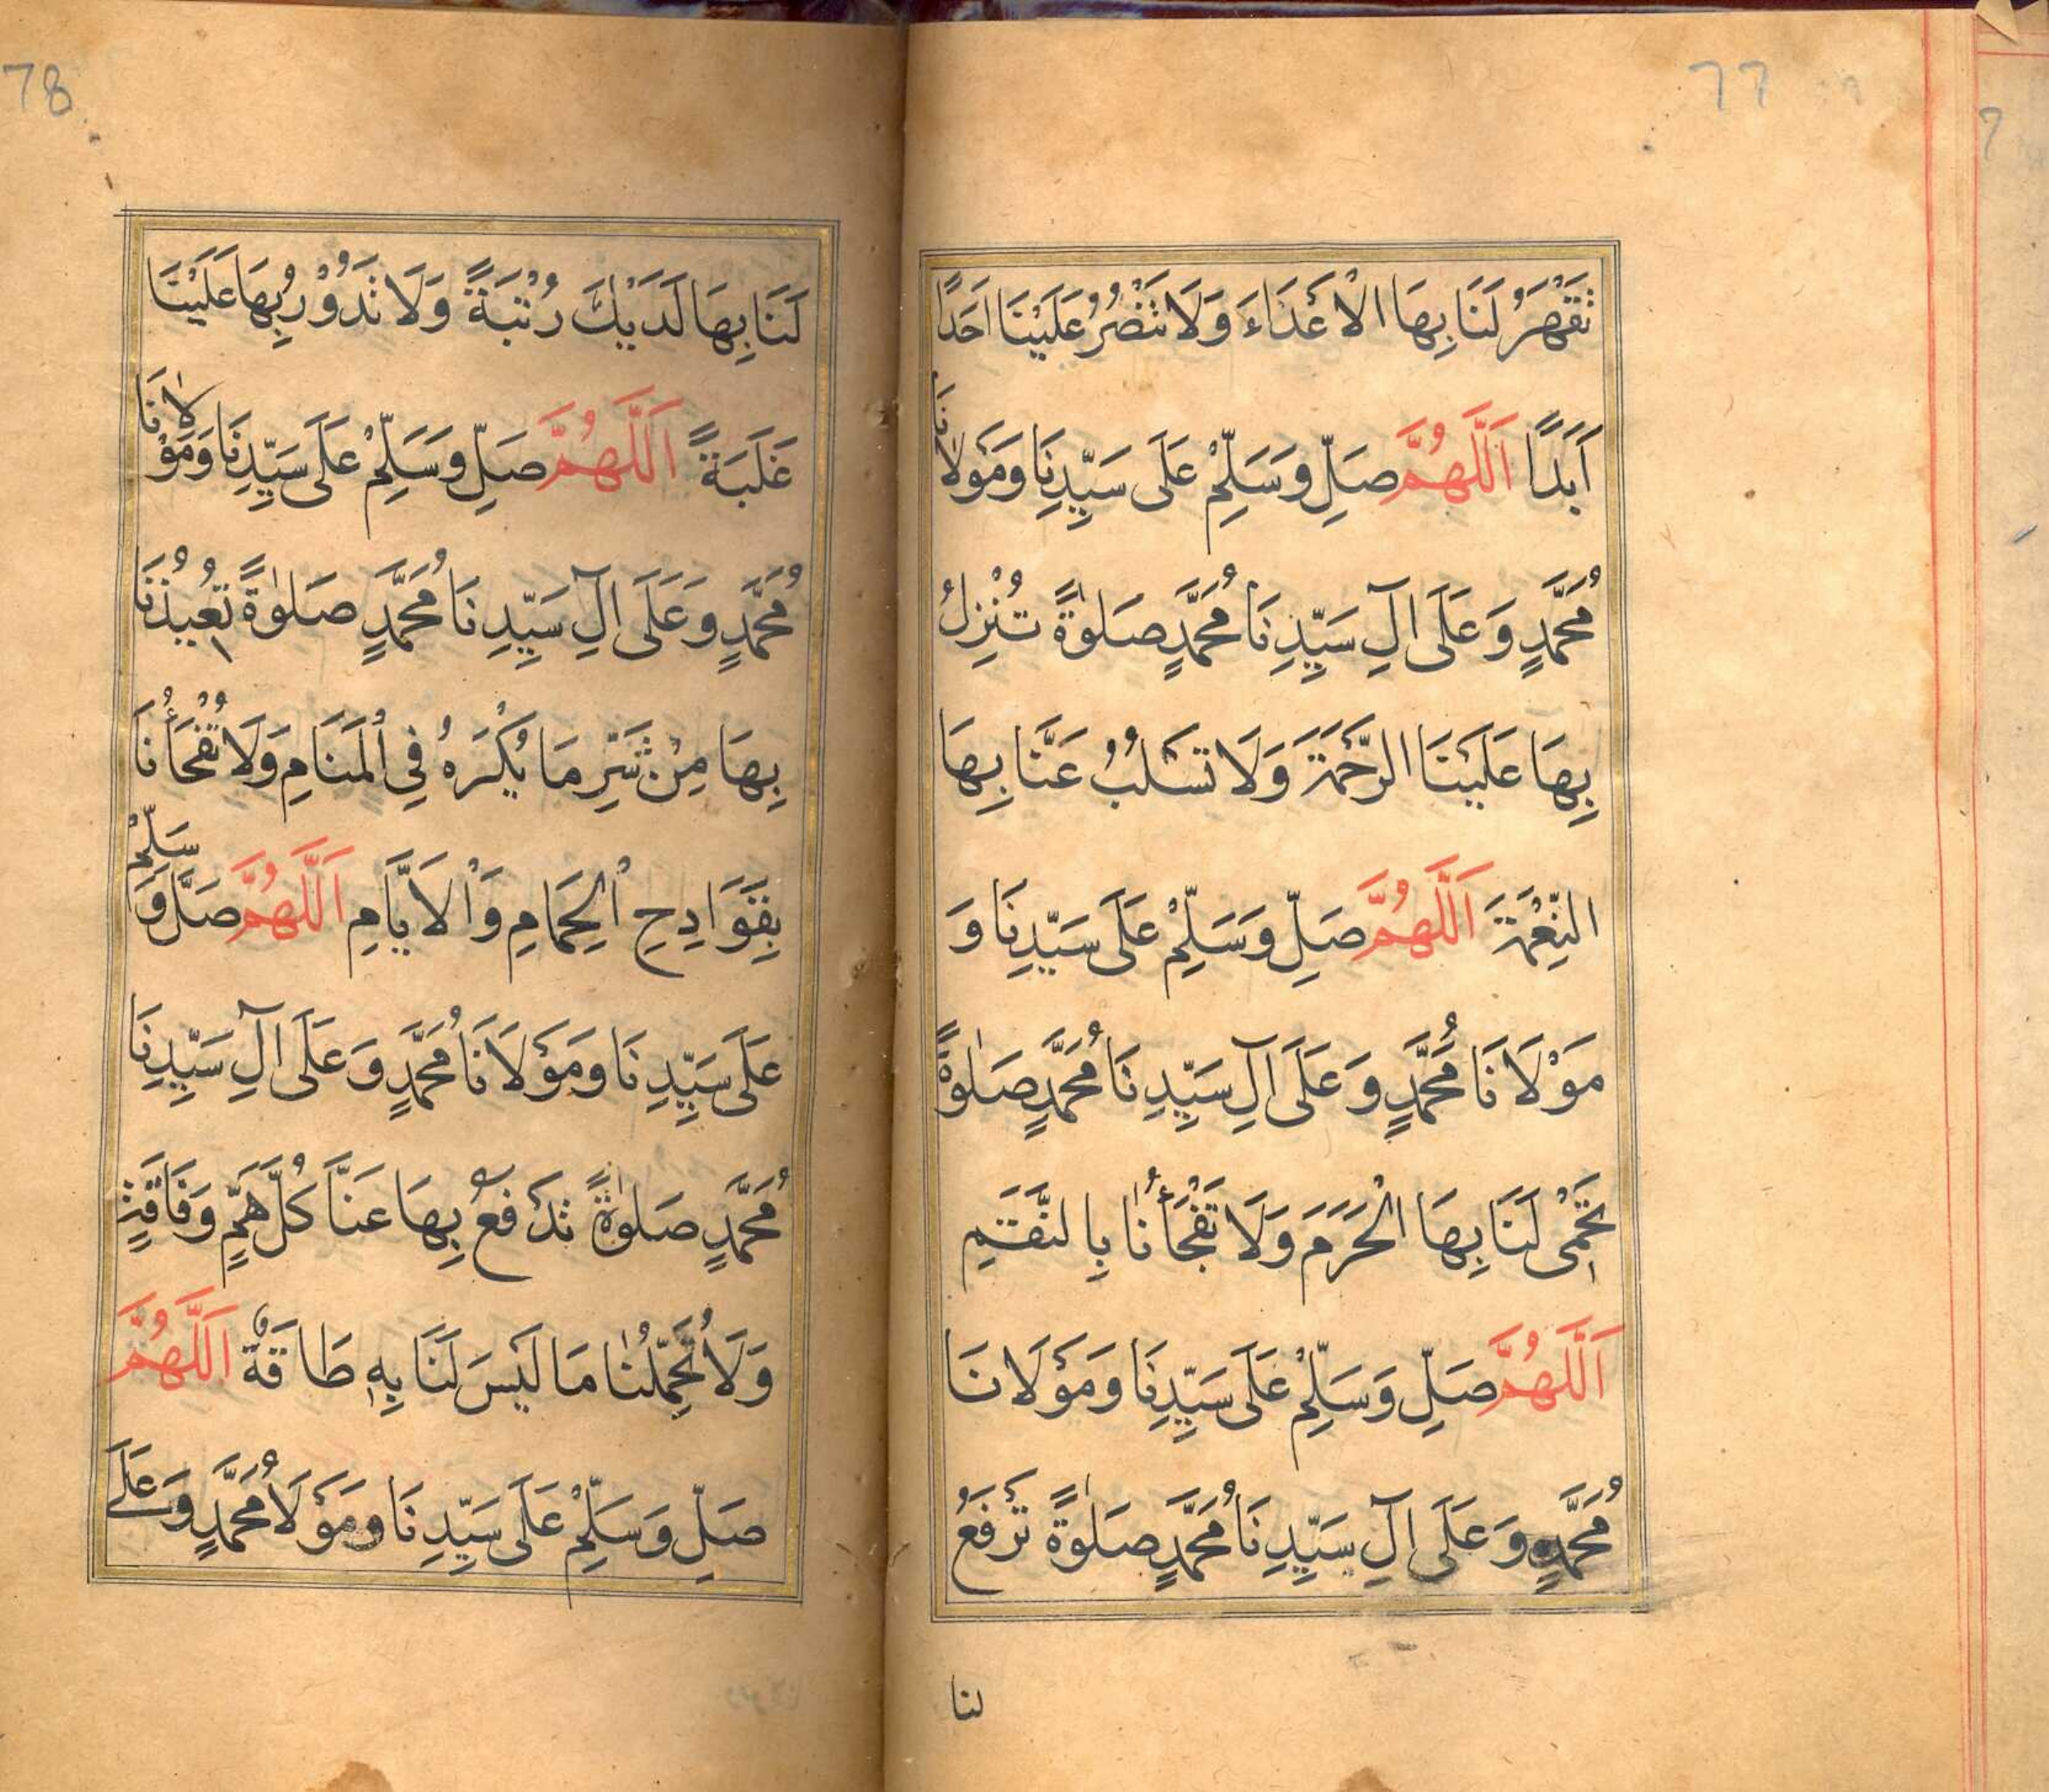 77
تَقْهَرُ لَنَا بِهَا الْاَعْدَاءَ وَلَا تَنْصُرُ عَلَيْنَا اَحَدًا
اَبَدًا اَللّٰهُمَّ صَلِّ وَسَلِّمْ عَلَى سَيِّدِنَا وَمَوْلَانَا
مُحَمَّدٍ وَعَلَى اٰلِ سَيِّدِنَا مُحَمَّدٍ صَلٰوةً تُنْزِلُ
بِهَا عَلَيْنَا الرَّحْمَةَ وَلَا تَسْلُبُ عَنَّا بِهَا
النِّعْمَةَ اَللّٰهُمَّ صَلِّ وَسَلِّمْ عَلَى سَيِّدِنَا وَ
مَوْلَانَا مُحَمَّدٍ وَعَلَى اٰلِ سَيِّدِنَا مُحَمَّدٍ صَلٰوةً
تَحْمِى لَنَا بِهَا الْحَرَمَ وَلَا تَفْجَأُنَا بِالنِّقَمِ
اَللّٰهُمَّ صَلِّ وَسَلِّمْ عَلَى سَيِّدِنَا وَمَوْلَانَا
مُحَمَّدٍ وَعَلَى اٰلِ سَيِّدِنَا مُحَمَّدٍ صَلٰوةً تَرْفَعُ
لنا
78
لَنَا بِهَا لَدَيْكَ رُتْبَةً وَلَا تَدُوْرُ بِهَا عَلَيْنَا
غَلَبَةً اَللّٰهُمَّ صَلِّ وَسَلِّمْ عَلَى سَيِّدِنَا وَمَوْلَانَا
مُحَمَّدٍ وَعَلَى اٰلِ سَيِّدِنَا مُحَمَّدٍ صَلٰوةً تُعِيْذُنَا
بِهَا مِنْ شَرِّ مَا يُكْرَهُ فِي الْمَنَامِ وَلَا تُفْجَأُنَا
بِقَوَادِحِ الْحِمَامِ وَالْاَيَّامِ اَللّٰهُمَّ صَلِّ وَسَلِّمْ
عَلَى سَيِّدِنَا وَمَوْلَانَا مُحَمَّدٍ وَعَلَى اٰلِ سَيِّدِنَا
مُحَمَّدٍ صَلٰوةً تَدْفَعُ بِهَا عَنَّا كُلَّ هَمٍّ وَفَاقَةٍ
وَلَا تُحَمِّلُنَا مَا لَيْسَ لَنَا بِهِ طَاقَةٌ اَللّٰهُمَّ
صَلِّ وَسَلِّمْ عَلَى سَيِّدِنَا وَمَوْلَا مُحَمَّدٍ وَعَلَى